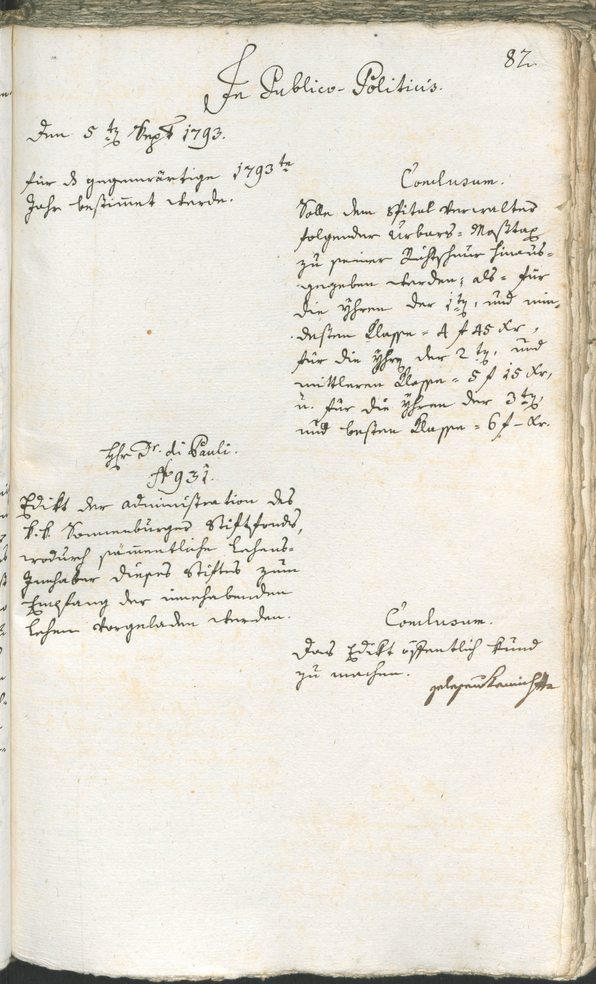 82.
In Publico-Politicis.
Den 5ten Sept 1793.
für ds gegenwärtige 1793te
Jahr bestimmet werde.
Conclusum.
Solle dem Spital Verwalter
folgender Urbars-Mosttax
zu seiner Richtschnur hinaus-
gegeben werden, als = für
die Yhren der 1ten, und min-
desten Classe = 4 f 45 Xr,
für die Yhre der 2ten, und
mittleren Classe = 5 f 15 Xr,
u. für die Yhren der 3ten,
und besten Classe = 6 f – Xr.
Hr Dr. di Pauli.
No 931.
Edikt der Administration des
k. k. Sonnenburger Stiftfonds,
wodurch sämmentliche Lehens-
Innhaber dieses Stiftes zum
Empfang der innehabenden
Lehen vorgeladen werden.
Conclusum.
Das Edikt öffentlich kund
zu machen.